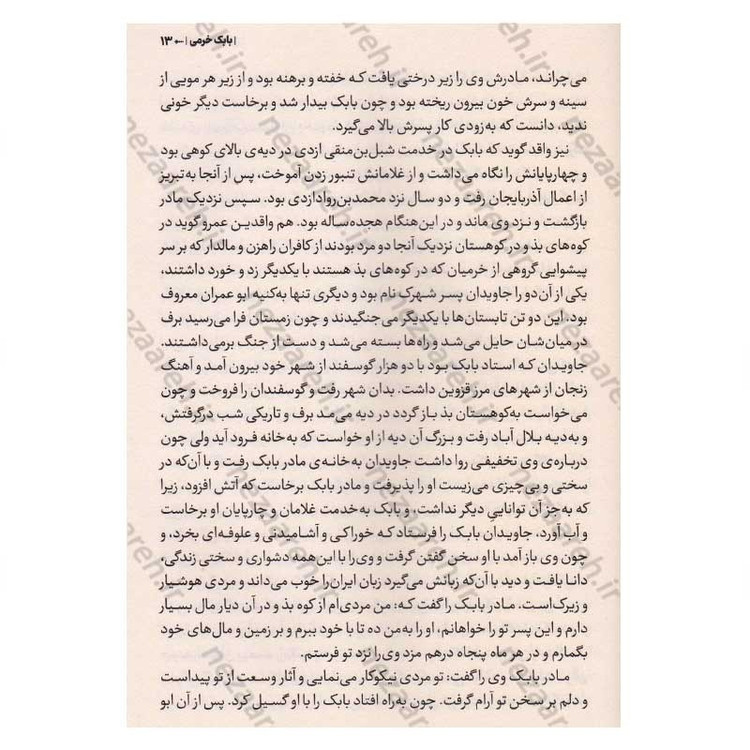 | بابک خرمی | ۱۳
می‌چراند، مادرش وی را زیر درختی یافت که خفته و برهنه بود و از زیر هر مویی از
سینه و سرش خون بیرون ریخته بود و چون بابک بیدار شد و برخاست دیگر خونی
ندید، دانست که به‌زودی کار پسرش بالا می‌گیرد.
نیز واقد گوید که بابک در خدمت شبل‌بن‌منقی ازدی در دیه‌ی بالای کوهی بود
و چهارپایانش را نگاه می‌داشت و از غلامانش تنبور زدن آموخت، پس از آنجا به‌تبریز
از اعمال آذربایجان رفت و دو سال نزد محمدبن‌رواد‌ازدی بود. سپس نزدیک مادر
بازگشت و نزد وی ماند و در این‌هنگام هجده‌ساله بود. هم واقدبن عمرو گوید در
کوه‌های بذ و در کوهستان نزدیک آنجا دو مرد بودند از کافران راهزن و مالدار که بر سر
پیشوایی گروهی از خرمیان که در کوه‌های بذ هستند با یکدیگر زد و خورد داشتند،
یکی از آن‌دو را جاویدان پسر شهرک نام بود و دیگری تنها به‌کنیه ابو عمران معروف
بود، این دو تن تابستان‌ها با یکدیگر می‌جنگیدند و چون زمستان فرا می‌رسید برف
در میان‌شان حایل می‌شد و راه‌ها بسته می‌شد و دست از جنگ برمی‌داشتند.
جاویدان که استاد بابک بود با دو هزار گوسفند از شهر خود بیرون آمد و آهنگ
زنجان از شهرهای مرز قزوین داشت. بدان شهر رفت و گوسفندان را فروخت و چون
می‌خواست به‌کوهستان بذ باز گردد در دیه می‌مد برف و تاریکی شب درگرفتش،
و به‌دیه بلال آباد رفت و بزرگ آن دیه از او خواست که به‌خانه فرود آید ولی چون
درباره‌ی وی تخفیفی روا داشت جاویدان به‌خانه‌ی مادر بابک رفت و با آن‌که در
سختی و بی‌چیزی می‌زیست او را پذیرفت و مادر بابک برخاست که آتش افزود، زیرا
که به‌جز آن توانایی دیگر نداشت، و بابک به‌خدمت غلامان و چارپایان او برخاست
و آب آورد، جاویدان بابک را فرستاد که خوراکی و آشامیدنی و علوفه‌ای بخرد، و
چون وی باز آمد با او سخن گفتن گرفت و وی را با این‌همه دشواری و سختی زندگی،
دانا یافت و دید با آن‌که زبانش می‌گیرد زبان ایران را خوب می‌داند و مردی هوشیار
و زیرک‌است. مادر بابک را گفت که: من مردی‌ام از کوه بذ و در آن دیار مال بسیار
دارم و این پسر تو را خواهانم، او را به‌من ده تا با خود ببرم و بر زمین و مال‌های خود
بگمارم و در هر ماه پنجاه درهم مزد وی را نزد تو فرستم.
مادر بابک وی را گفت: تو مردی نیکوکار می‌نمایی و آثار وسعت از تو پیداست
و دلم بر سخن تو آرام گرفت. چون به‌راه افتاد بابک را با او گسیل کرد. پس از آن ابو
nezaareh.ir